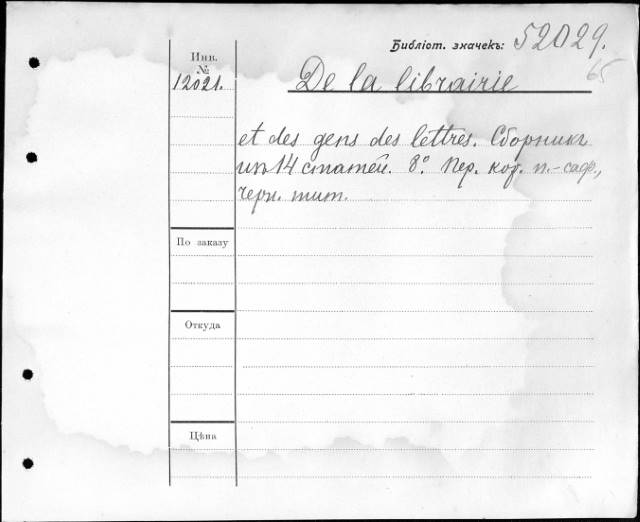 Библіот. значекъ: 52029.
65
Инв.
№
12021.
De la librairie
et des gens des lettres. Сборникъ
изъ 14 статей. 8º. Пер. кор. п.-саф.,
черн. тит.
По заказу
Откуда
Цѣна